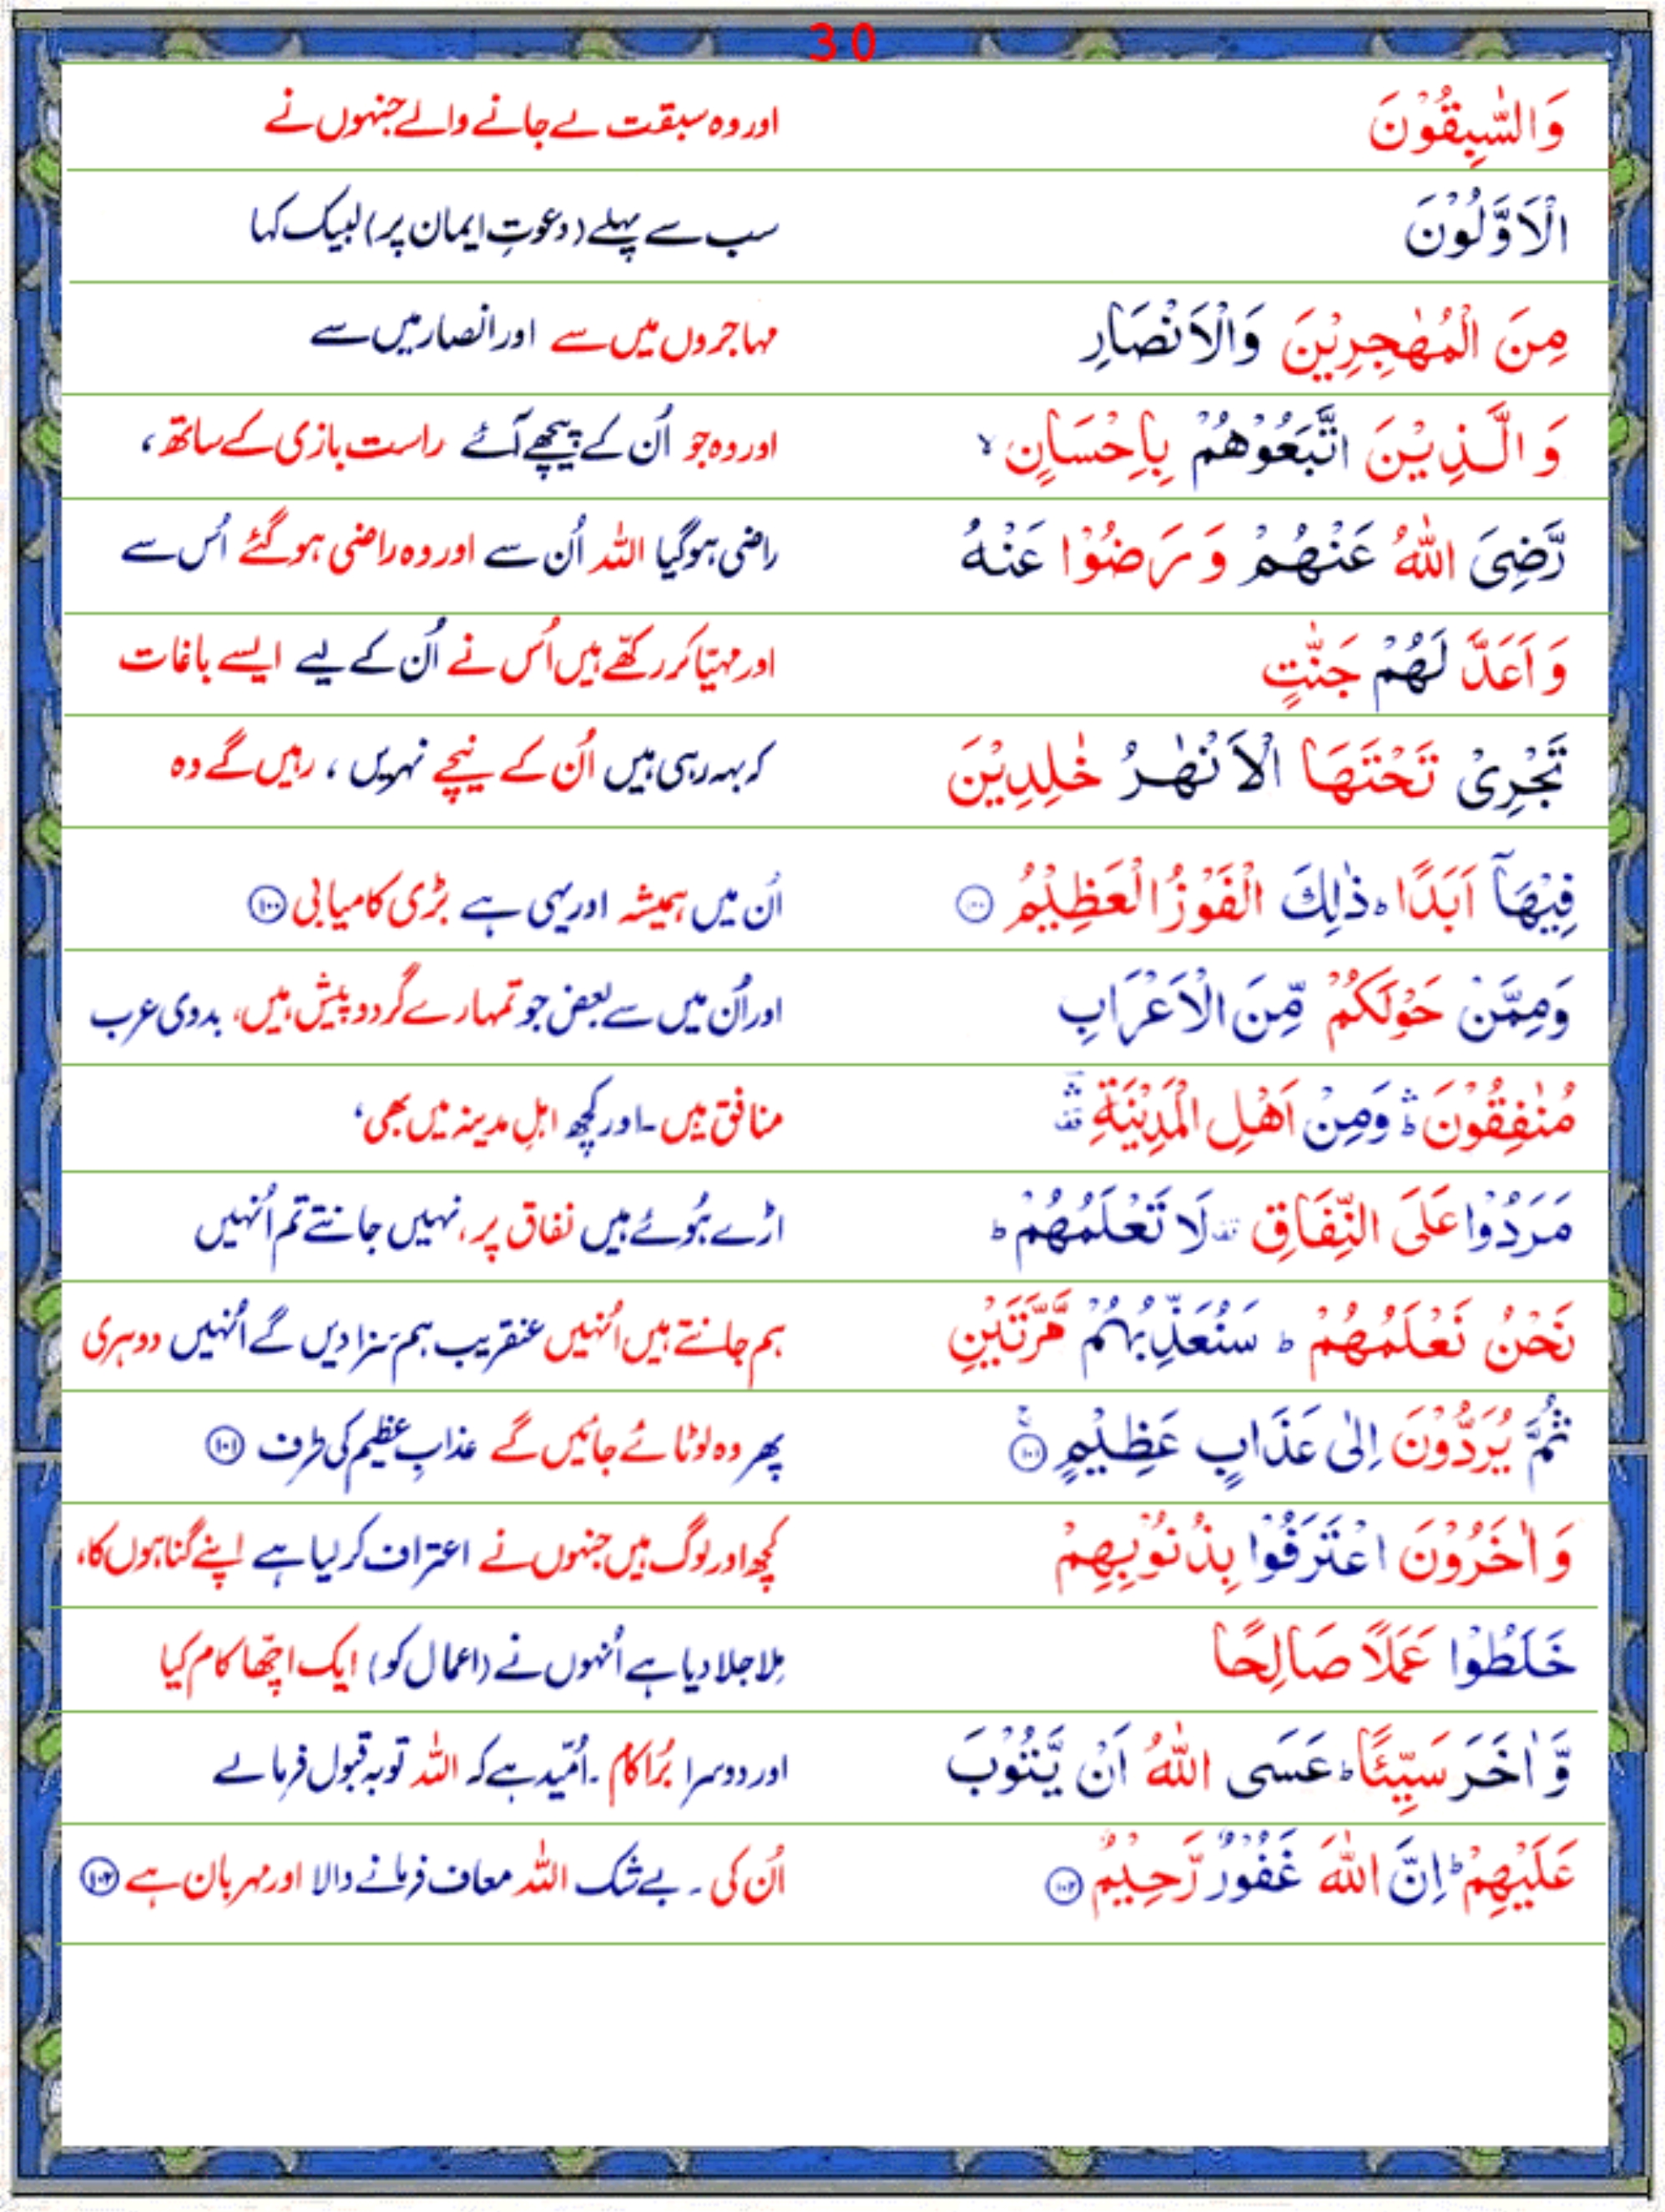 30
وَالسّٰبِقُوْنَ اور وہ سبقت لے جانے والے جنہوں نے
الْاَوَّلُوْنَ سب سے پہلے (دعوتِ ایمان پر) لبیک کہا
مِنَ الْمُهٰجِرِيْنَ وَالْاَنْصَارِ مہاجروں میں سے اور انصار میں سے
وَ الَّذِيْنَ اتَّبَعُوْهُمْ بِاِحْسَانٍ ۙ اور وہ جو اُن کے پیچھے آئے راست بازی کے ساتھ،
رَّضِیَ اللّٰهُ عَنْهُمْ وَ رَضُوْا عَنْهُ راضی ہوگیا اللہ اُن سے اور وہ راضی ہوگئے اُس سے
وَ اَعَدَّ لَهُمْ جَنّٰتٍ اور مہیّا کر رکھّے ہیں اُس نے اُن کے لیے ایسے باغات
تَجْرِیْ تَحْتَهَا الْاَنْهٰرُ خٰلِدِيْنَ کہ بہہ رہی ہیں اُن کے نیچے نہریں ، رہیں گے وہ
فِيْهَاۤ اَبَدًا ؕ ذٰلِكَ الْفَوْزُ الْعَظِيْمُ ۝۱۰۰ اُن میں ہمیشہ اور یہی ہے بڑی کامیابی ۝۱۰۰
وَمِمَّنْ حَوْلَكُمْ مِّنَ الْاَعْرَابِ اور اُن میں سے بعض جو تمہارے گرد و پیش ہیں، بدوی عرب
مُنٰفِقُوْنَ ۛؕ وَمِنْ اَهْلِ الْمَدِيْنَةِ ۛؔ منافق ہیں ۔ اور کچھ اہلِ مدینہ میں بھی،
مَرَدُوْا عَلَی النِّفَاقِ ۫ لَا تَعْلَمُهُمْ ؕ اڑے ہُوئے ہیں نفاق پر، نہیں جانتے تم اُنہیں
نَحْنُ نَعْلَمُهُمْ ؕ سَنُعَذِّبُهُمْ مَّرَّتَيْنِ ہم جانتے ہیں اُنہیں عنقریب ہم سزا دیں گے اُنہیں دوہری
ثُمَّ يُرَدُّوْنَ اِلٰی عَذَابٍ عَظِيْمٍ ۝۱۰۱ پھر وہ لوٹائے جائیں گے عذابِ عظیم کی طرف ۝۱۰۱
وَ اٰخَرُوْنَ اعْتَرَفُوْا بِذُنُوْبِهِمْ کچھ اور لوگ ہیں جنہوں نے اعتراف کرلیا ہے اپنے گناہوں کا،
خَلَطُوْا عَمَلًا صَالِحًا مِلا جلا دیا ہے اُنہوں نے (اعمال کو) ایک اچھّا کام کیا
وَّ اٰخَرَ سَيِّئًا ؕ عَسَی اللّٰهُ اَنْ يَّتُوْبَ اور دوسرا بُرا کام ۔ اُمّید ہے کہ اللہ توبہ قبول فرمالے
عَلَيْهِمْ ؕ اِنَّ اللّٰهَ غَفُوْرٌ رَّحِيْمٌ ۝۱۰۲ اُن کی ۔ بے شک اللہ معاف فرمانے والا اور مہربان ہے ۝۱۰۲